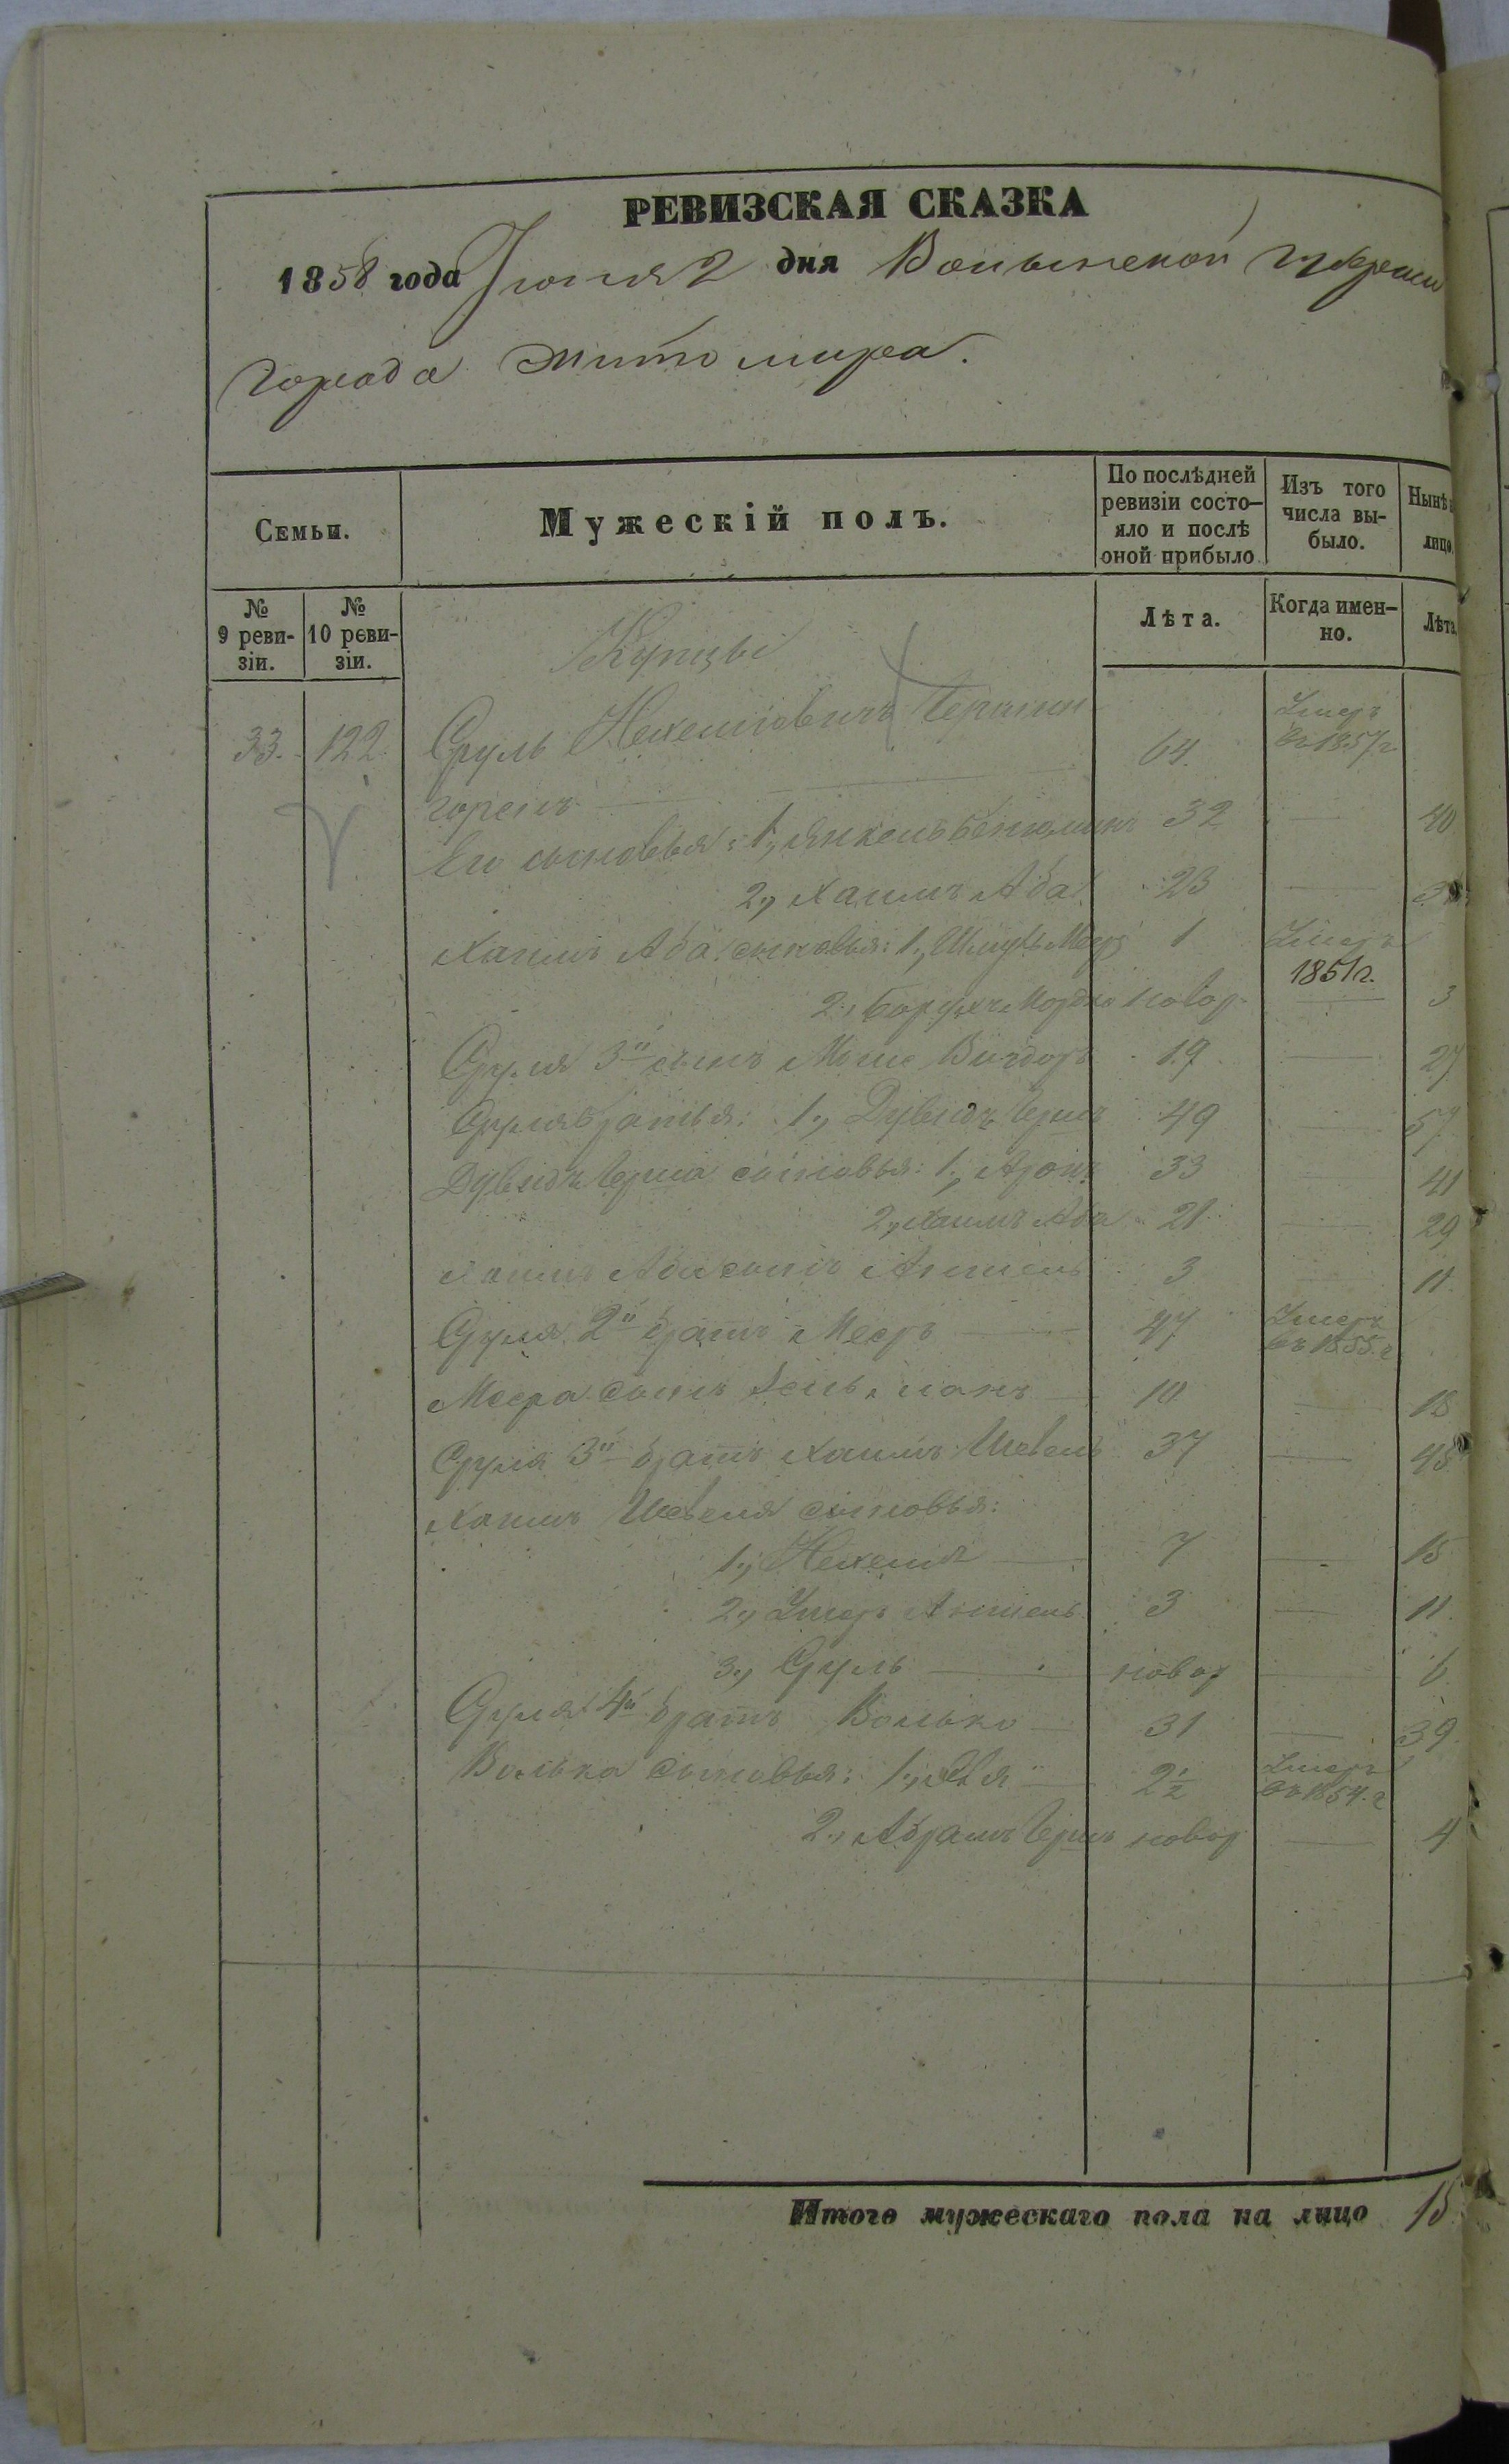 РЕВИЗСКАЯ СКАЗКА
1858 года Іюня 2 дня Волынской Губерніи
города Житомира.
Семьи. Мужескій полъ. По послѣдней ревизіи состо- яло и послѣ оной прибыло Изъ того числа вы- было. Нынѣ лицо
№ 9 реви- зіи. № 10 реви- зіи. Лѣта. Когда имен- но. Лѣта
Купцы
33. 122. Сруль Нехемiовичъ 64. Умеръ въ 1857 г.
Его сыновья: 1., Янкель Бенюминъ 32 — 40
2., Хаимъ Аба 23 —
Хаимъ Аба сыновья: 1., Шмуль Меер 1 Умеръ 1851 г.
2., Борухъ Мордко новор. — 3
Сруля 3й сынъ Мошe Вигдоръ 19 — 27
Сруля братья: 1., Дувидъ Гершъ 49 — 57
Дувидъ Герша сыновья: 1., Аронъ 33 — 41
2., Хаимъ Аба 21 — 29
Хаимъ Аба сынъ Аншель 3 — 11.
Сруля 2й братъ Мееръ — 47 Умеръ въ 1855. г
Меера сынъ Зельманъ — 10 — 18
Сруля 3й братъ Хаимъ Шевель 37 — 45
Хаимъ Шевеля сыновья:
1., Нехемiя — 7 — 15
2., Аншель 3 — 11.
3., Сруль — новор — 6
Сруля 4й братъ Волько — 31 — 39.
Волька сыновья: 1., — 2½ Умеръ въ 1854. г
2., Абрамъ Гершъ новор — 4
Итого мужескаго пола на лицо 15.